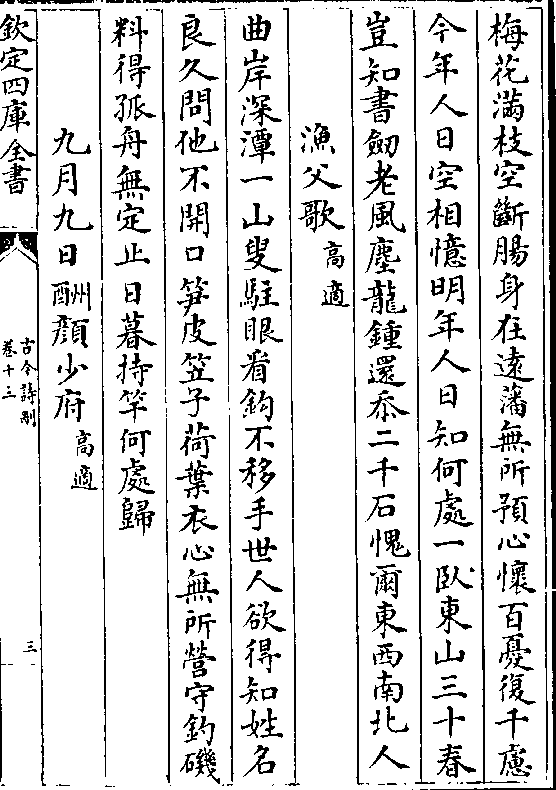 梅花滿枝空斷腸身在逺藩無所預心懷百憂復千慮
今年人日空相憶明年人日知何處一臥東山三十春
豈知書劒老風塵龍鍾還忝二千石愧爾東西南北人
漁父歌高適
曲岸深潭一山叟駐眼看鈎不移手世人欲得知姓名
良久問他不開口笋皮笠子荷葉衣心無所營守釣磯
料得孤舟無定止日暮持竿何處歸
九月九日酬顔少府高適
欽定四庫全書
古今詩刪
卷十三
三